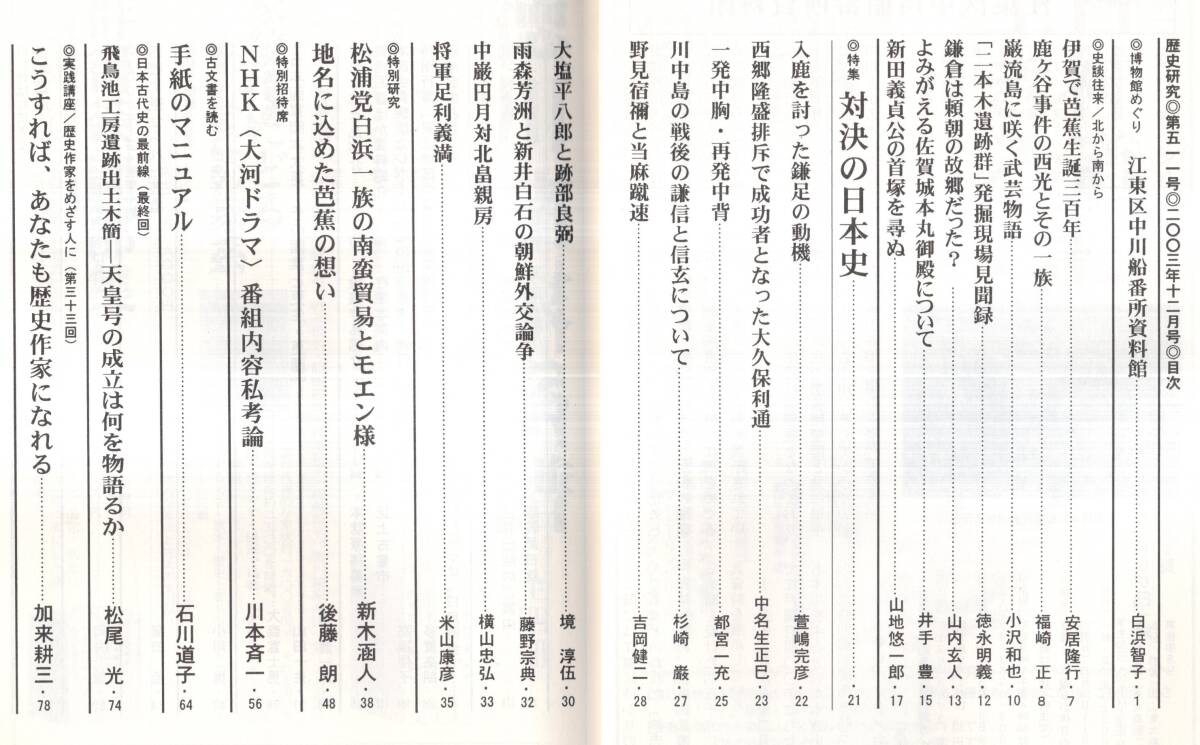 歴史研究◎第五一一号◎二〇〇三年十二月号◎目次
◎博物館めぐり 江東区中川船番所資料館……白浜智子・1
◎史談往来／北から南から
伊賀で芭蕉生誕三百年……安居隆行・7
鹿ヶ谷事件の西光とその一族……福崎 正・8
巌流島に咲く武芸物語……小沢和也・10
「二本木遺跡群」発掘現場見聞録……徳永明義・12
鎌倉は頼朝の故郷だった？……山内玄人・13
よみがえる佐賀城本丸御殿について……井手 豊・15
新田義貞公の首塚を尋ぬ……山地悠一郎・17
◎特集 対決の日本史……21
入鹿を討った鎌足の動機……萱嶋完彦・22
西郷隆盛排斥で成功者となった大久保利通……中名生正巳・23
一発中胸・再発中背……都宮一充・25
川中島の戦後の謙信と信玄について……杉崎 巌・27
野見宿禰と当麻蹴速……吉岡健二・28
大塩平八郎と跡部良弼……境 淳伍・30
雨森芳洲と新井白石の朝鮮外交論争……藤野宗典・32
中巌円月対北畠親房……横山忠弘・33
将軍足利義満……米山康彦・35
◎特別研究
松浦党白浜一族の南蛮貿易とモエン様……新木涵人・38
地名に込めた芭蕉の想い……後藤 朗・48
◎特別招待席
NHK〈大河ドラマ〉番組内容私考論……川本斉一・56
◎古文書を読む
手紙のマニュアル……石川道子・64
◎日本古代史の最前線（最終回）
飛鳥池工房遺跡出土木簡―天皇号の成立は何を物語るか……松尾 光・74
◎実践講座／歴史作家をめざす人に（第三十三回）
こうすれば、あなたも歴史作家になれる……加来耕三・78